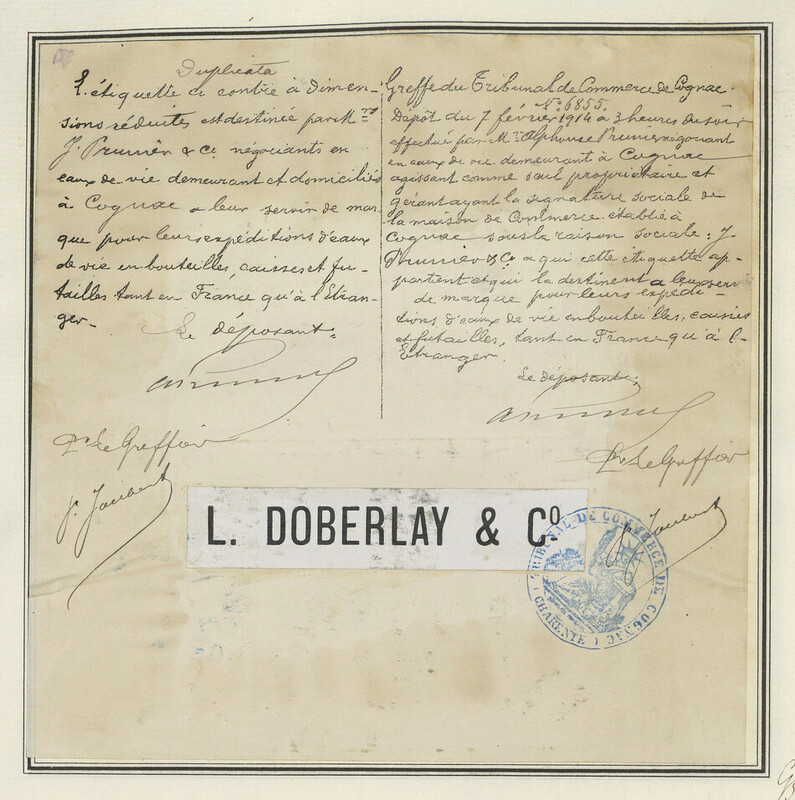 Duplicata
L'étiquette ci contre à dimen-
sions réduites est destinée par Mrs
J. Prunier & Co négociants en
eaux de vie demeurant et domiciliés
à Cognac a leur servir de mar
que pour leurs expéditions d'eaux
de vie en bouteilles, caisses et fu-
tailles tant en France qu'à l'Etran-
ger-
Le déposant
Pr Le Greffier
Greffe du Tribunal de Commerce de Cognac
No 6855.
Dépôt du 7 février 1914 à 3 heures du soir
effectué par Mr Alphonse Prunier négociant
en eaux de vie demeurant à Cognac
agissant comme seul propriétaire et
gérant ayant la signature sociale de
la maison de Commerce établie à
Cognac sous la raison sociale: J.
Prunier & Co a qui cette étiquette ap-
partient et qui la destinent a leur servir
de marque pour leurs expédi-
tions d'eaux de vie en bouteilles, caisses
et futailles, tant en France qu'à l'
Etranger
Le déposant
Pr Le Greffier
L. DOBERLAY & Co.
TRIBUNAL DE COMMERCE DE COGNAC
CHARENTE